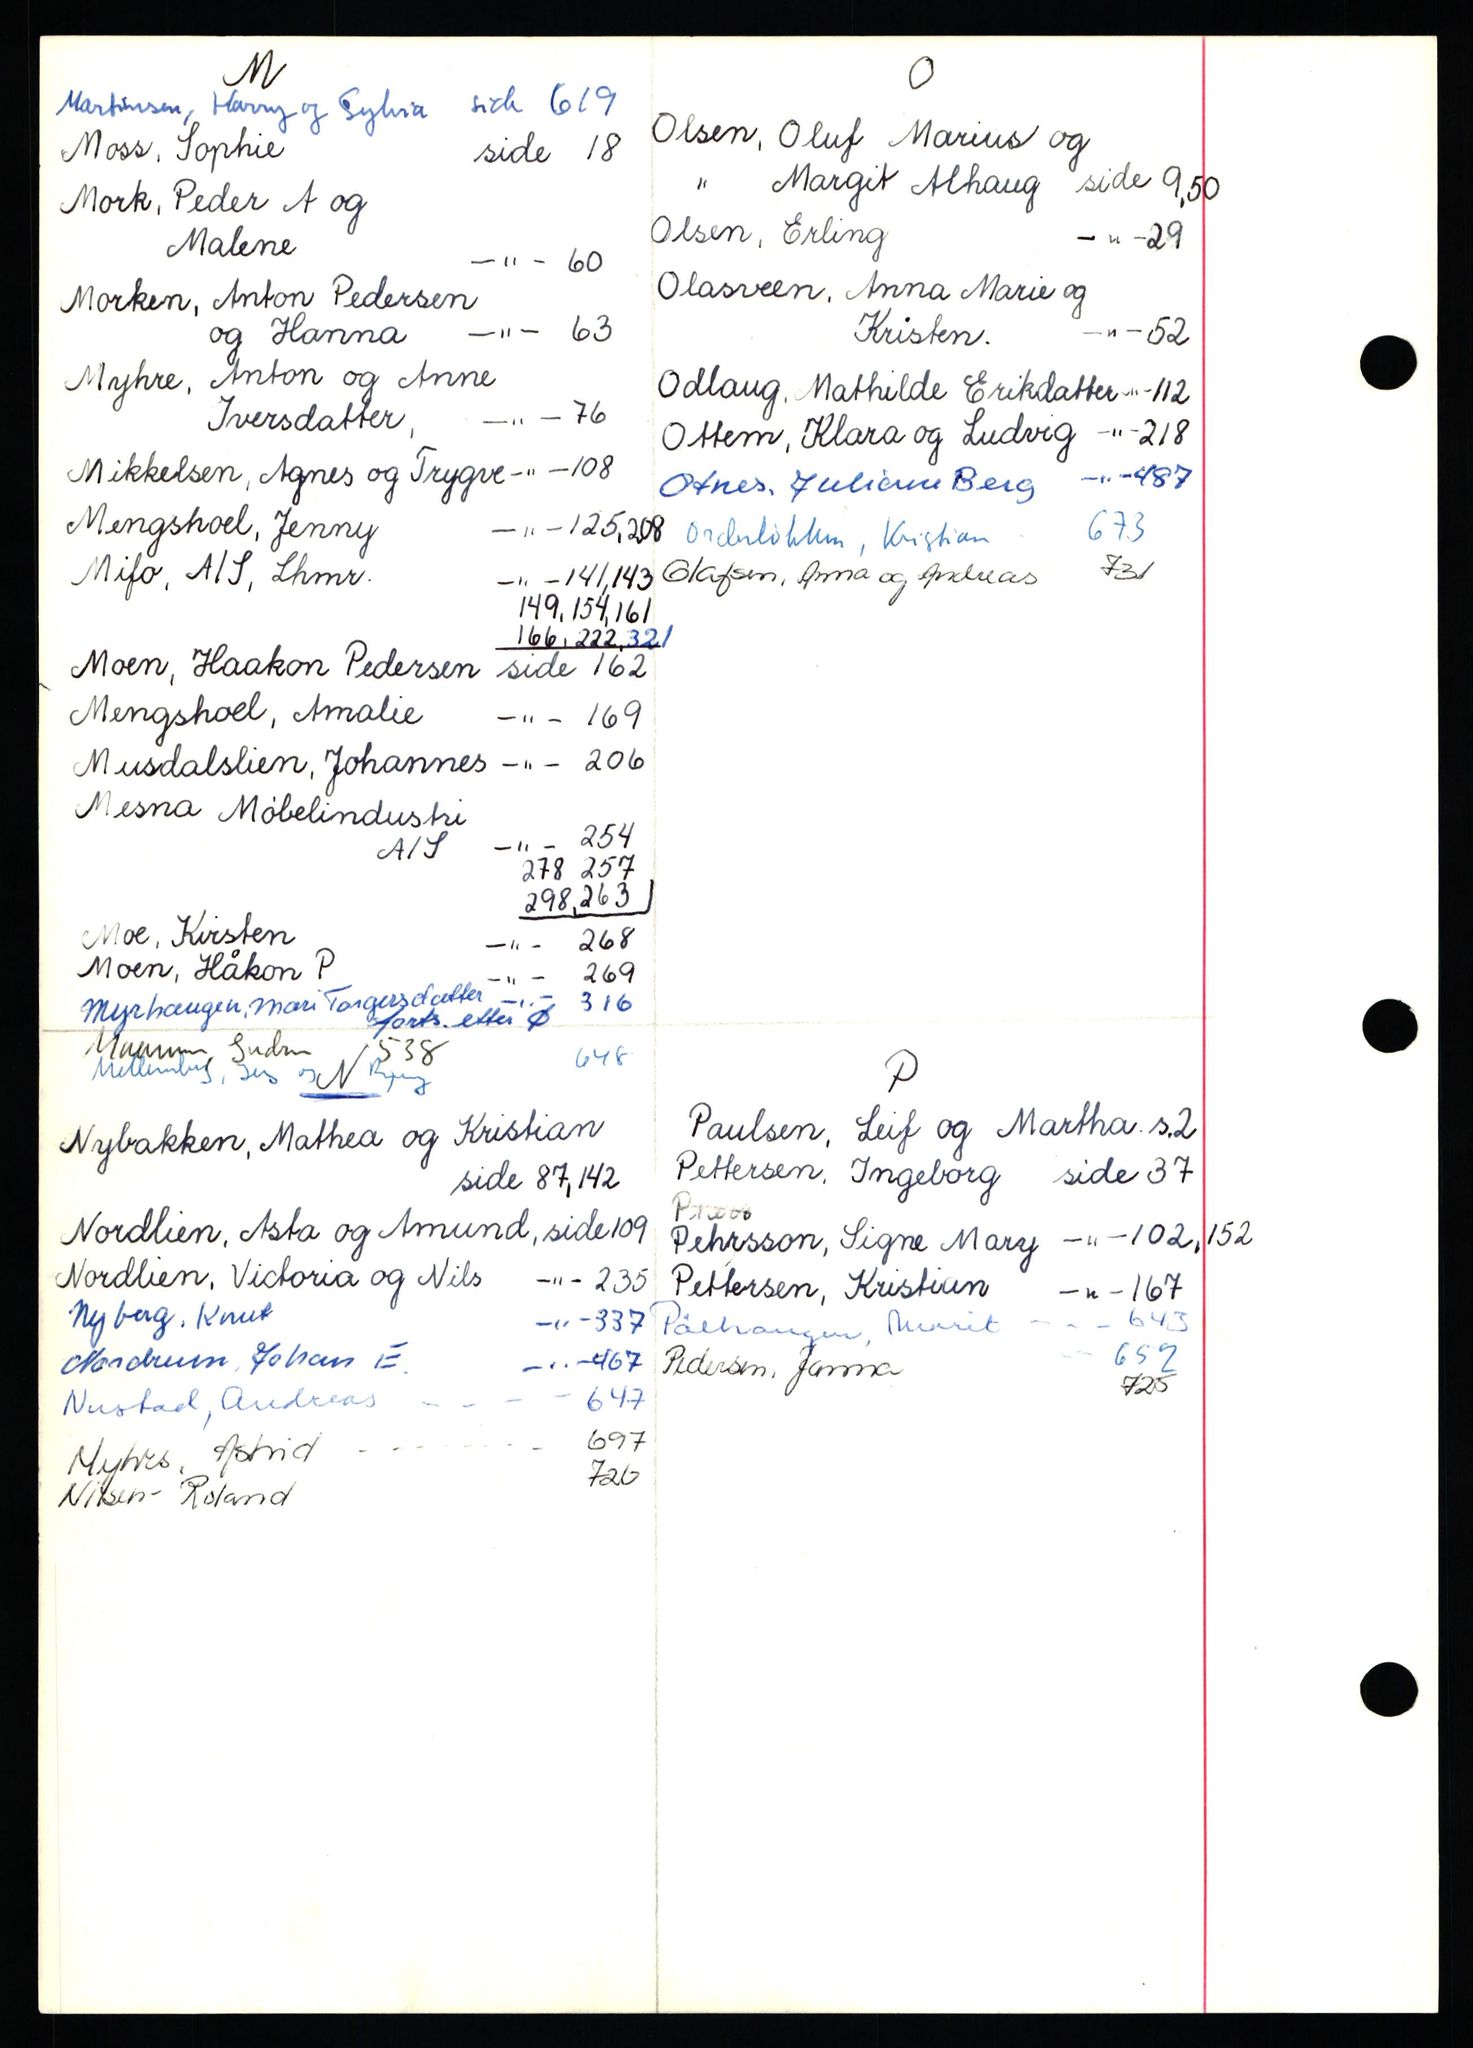 M
Martinsen, Harry og Sylvia side 619
Moss, Sophie side 18
Mork, Peder A og
Malene —"— 60
Morken, Anton Pedersen
og Hanna —"— 63
Myhre, Anton og Anne
Iversdatter, —"— 76
Mikkelsen, Agnes og Trygve —"— 108
Mengshoel, Jenny —"— 125, 208
Mifo, A/S, Lhmr. —"— 141, 143
149, 154, 161
166, 222, 321
Moen, Haakon Pedersen side 162
Mengshoel, Amalie —"— 169
Musdalslien, Johannes —"— 206
Mesna Møbelindustri
A/S —"— 254
278 257
298, 263
Moe, Kirsten —"— 268
Moen, Håkon P —"— 269
Myrhaugen, Mari Torgersdatter —"— 316
forts. etter Ø
Gudrun 538
og 648
N
Nybakken, Mathea og Kristian
side 87, 142
Nordlien, Asta og Amund, side 109
Nordlien, Victoria og Nils —"— 235
Nyberg, Knut —"— 337
Nordrum, Johan E. —"— 467
Nustad, Andreas - - - 647
Myhrs, Astrid - - - - - - - 697
Nilsen- Roland 726
O
Olsen, Oluf Marius og
" Margit Alhaug side 9, 50
Olsen, Erling —"— 29
Olasveen, Anna Marie og
Kristen. —"— 52
Odlaug, Mathilde Erikdatter —"— 112
Ottem, Klara og Ludvig —"— 218
Otnes, Juliane Berg —"— 487
Orderløkken, Kristian 673
Olafsen, Anna og Andreas 731
P
Paulsen, Leif og Martha. s. 2
Pettersen, Ingeborg side 37
Pehrsson, Signe Mary —"— 102, 152
Pettersen, Kristian —"— 167
Pålhaugen, Marit - - - 643
- - 652
Pedersen, Janna 725